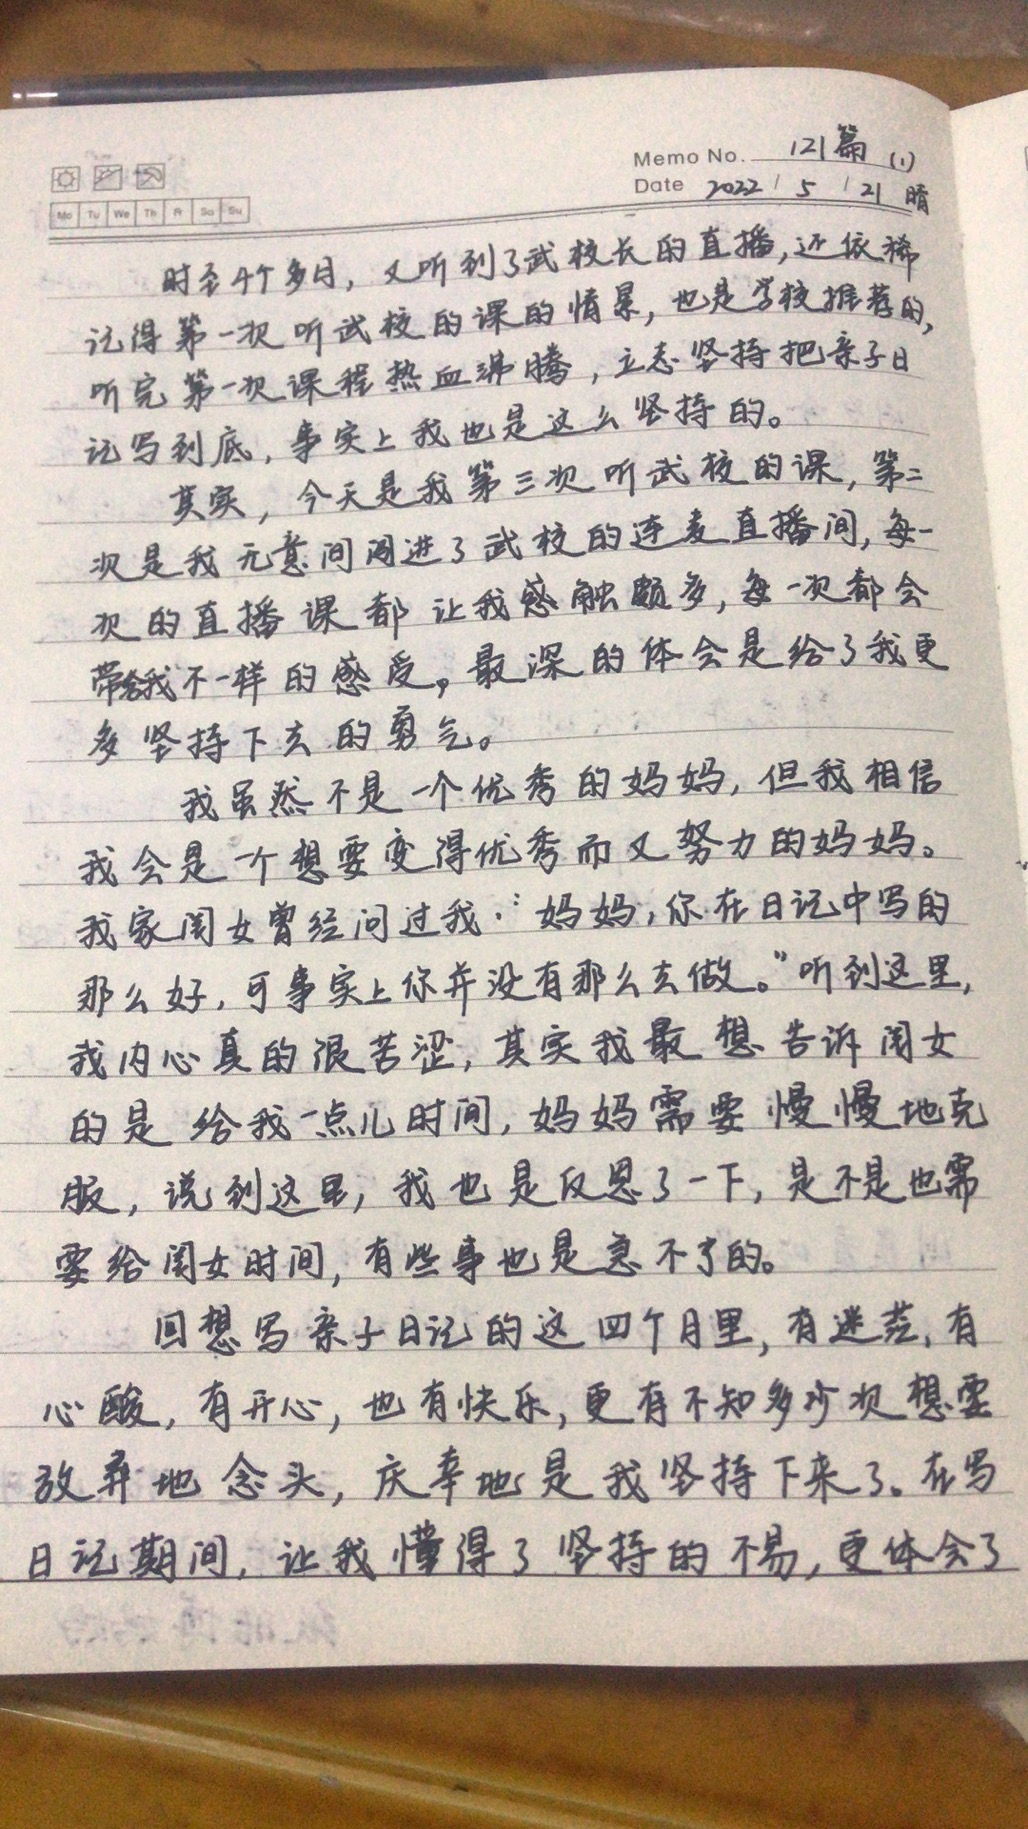 Memo No. 121篇 (1)
Date 2022 / 5 / 21 晴
Mo Tu We Th Fr Sa Su
时至4个多月，又听到了武校长的直播，还依稀
记得第一次听武校的课的情景，也是学校推荐的，
听完第一次课程热血沸腾，立志坚持把亲子日
记写到底，事实上我也是这么坚持的。
其实，今天是我第三次听武校的课，第二
次是我无意间闯进了武校的连麦直播间，每一
次的直播课都让我感触颇多，每一次都会
带给我不一样的感受，最深的体会是给了我更
多坚持下去的勇气。
我虽然不是一个优秀的妈妈，但我相信
我会是一个想要变得优秀而又努力的妈妈。
我家闺女曾经问过我：“妈妈，你在日记中写的
那么好，可事实上你并没有那么去做。”听到这里，
我内心真的很苦涩，其实我最想告诉闺女
的是给我一点儿时间，妈妈需要慢慢地克
服，说到这里，我也是反思了一下，是不是也需
要给闺女时间，有些事也是急不了的。
回想写亲子日记的这四个月里，有迷茫，有
心酸，有开心，也有快乐，更有不知多少次想要
放弃地念头，庆幸地是我坚持下来了。在写
日记期间，让我懂得了坚持的不易，更体会了